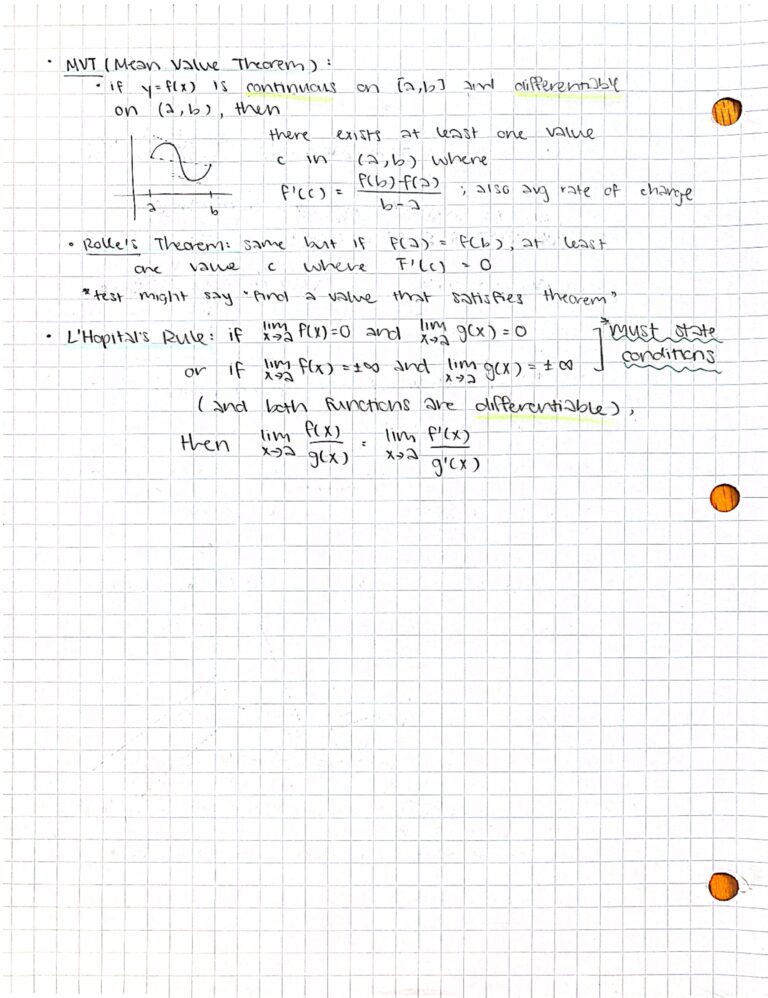 • MVT (Mean Value Theorem) :
• if y=f(x) is continuous on [a,b] and differentiable
on (a,b), then
there exists at least one value
c in (a,b) where
f'(c) = f(b)-f(a) / b-a ; also avg rate of change
a b
• Rolle's Theorem: same but if f(a) = f(b), at least
one value c where F'(c) = 0
*test might say "find a value that satisfies theorem"
• L'Hopital's Rule: if lim x→a f(x)=0 and lim x→a g(x)=0 *must state
or if lim x→a f(x)=±∞ and lim x→a g(x)=±∞ conditions
(and both functions are differentiable),
then lim x→a f(x)/g(x) = lim x→a f'(x)/g'(x)